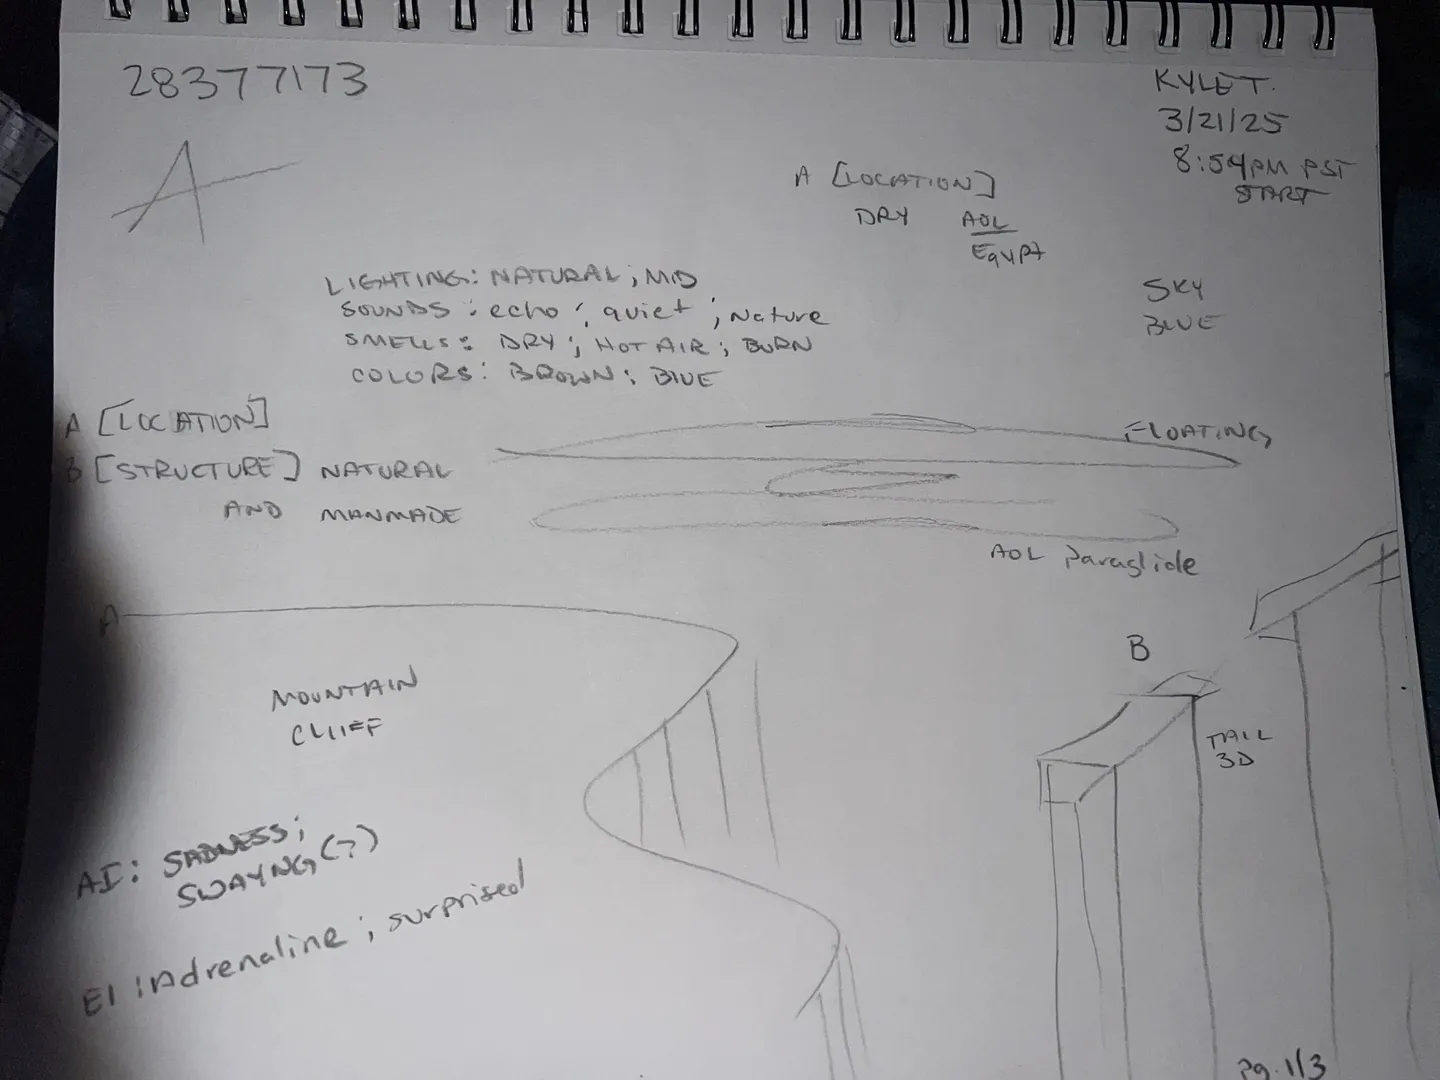 28377173
KYLE T.
3/21/25
8:54PM PST
START
A
A [LOCATION]
DRY AOL
Egypt
LIGHTING: NATURAL; MID
SOUNDS: echo; quiet; Nature
SMELLS: DRY; HOT AIR; BURN
COLORS: BROWN; BLUE
SKY
BLUE
A [LOCATION]
B [STRUCTURE] NATURAL
AND MANMADE
FLOATING
AOL Paraglide
A
MOUNTAIN
CLIFF
B
TALL
3D
AI: SADNESS;
SWAYNG(?)
EI: Adrenaline; surprised
Pg. 1/3